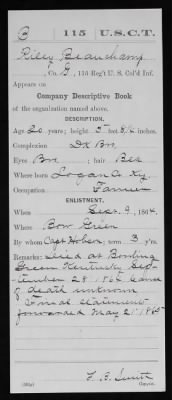 B | 115 | U.S.C.T.
Riley Beauchamp
, Co. G, 115 Reg't U. S. Col'd Inf.
Appears on
Company Descriptive Book
of the organization named above.
DESCRIPTION.
Age 20 years; height 5 feet 8 1/2 inches.
Complexion Dk Bro
Eyes Bro; hair Blk
Where born Logan Co Ky.
Occupation Farmer
ENLISTMENT.
When Sept. 9, 1864.
Where Bow Green
By whom Capt Hobson; term 3 y'rs.
Remarks: Died at Bowling
Green Kentucky Sep-
tember 29 1864 Cause
of death unknown
Final statement
forwarded May 21 1865
Copyist.